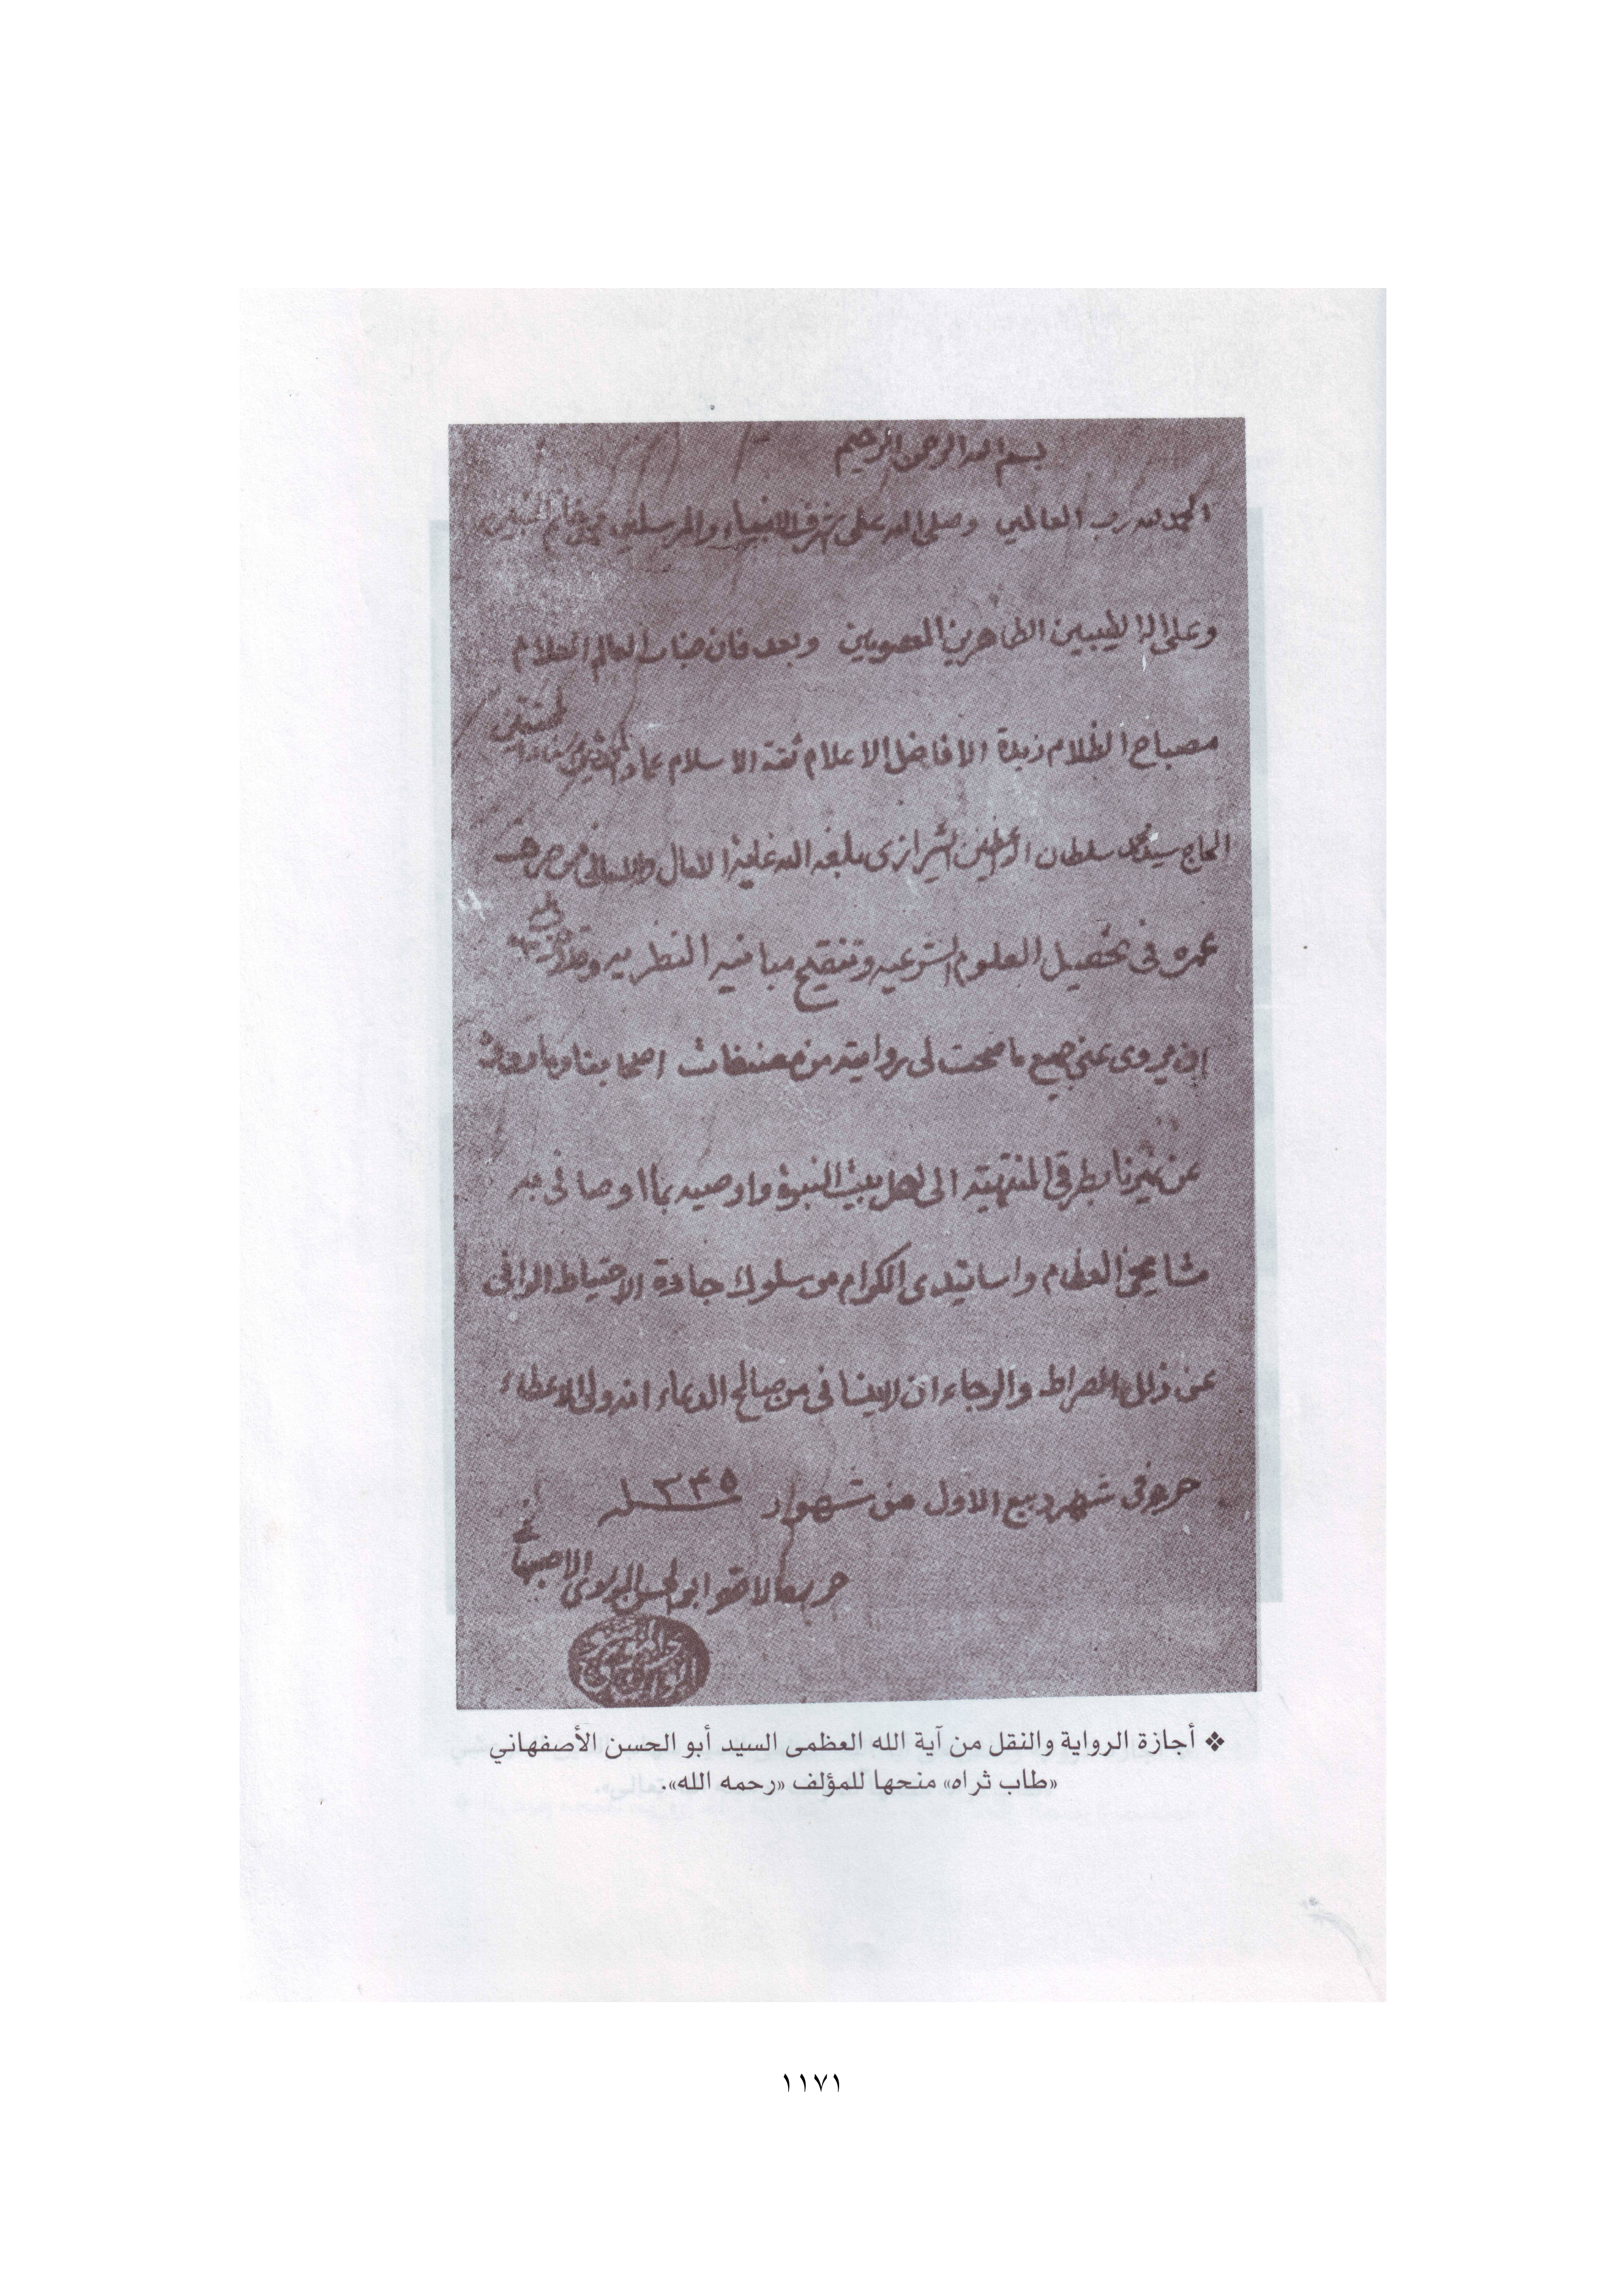 بسم الله الرحمن الرحيم
الحمد لله رب العالمين وصلى الله على اشرف الانبياء والمرسلين محمد خاتم النبيين
وعلى اله الطيبين الطاهرين المعصومين وبعد فان جناب العالم العلام
مصباح الظلام زبدة الافاضل الاعلام ثقة الاسلام عماد
الحاج سيد محمد سلطان الواعظين الشيرازى بلغه الله غاية الامال والامانى ممن صرف
عمره فى تحصيل العلوم الشرعيه وتنقيح مبانيه النظريه
ان يروى عنى جميع ما صحت لى روايته من مصنفات اصحابنا وما
عن غيرنا بطرقى المنتهية الى اهل بيت النبوة واوصيه بما اوصانى به
مشايخى العظام واساتيدى الكرام من سلوك جادة الاحتياط
عن ذلل الصراط والرجاء ان لا ينسانى من صالح الدعاء انه ولى الاعطاء
حرر فى شهر ربيع الاول من شهور سنه ١٣٤٥
حرره الاحقر ابو الحسن الموسوى الاصبهانى
❖ أجازة الرواية والنقل من آية الله العظمى السيد أبو الحسن الأصفهاني
«طاب ثراه» منحها للمؤلف «رحمه الله».
١١٧١